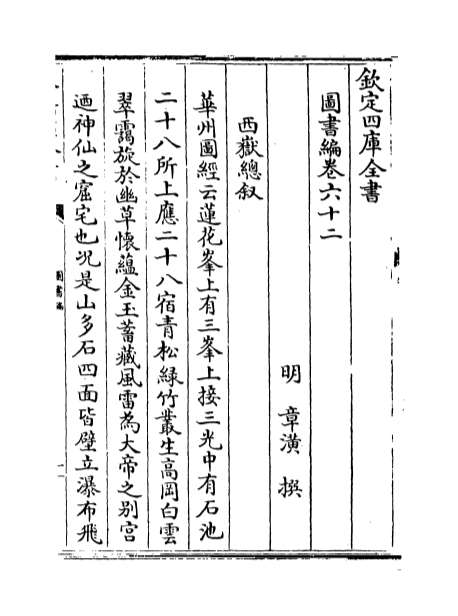 欽定四庫全書
圖書編卷六十二
明 章潢 撰
西嶽總叙
華州圖經云蓮花峯上有三峯上接三光中有石池
二十八所上應二十八宿青松緑竹叢生髙岡白雲
翠靄旋於幽草懷藴金玉蓄藏風雷為大帝之别宫
廼神仙之窟宅也况是山多石四面皆壁立瀑布飛
圖書編